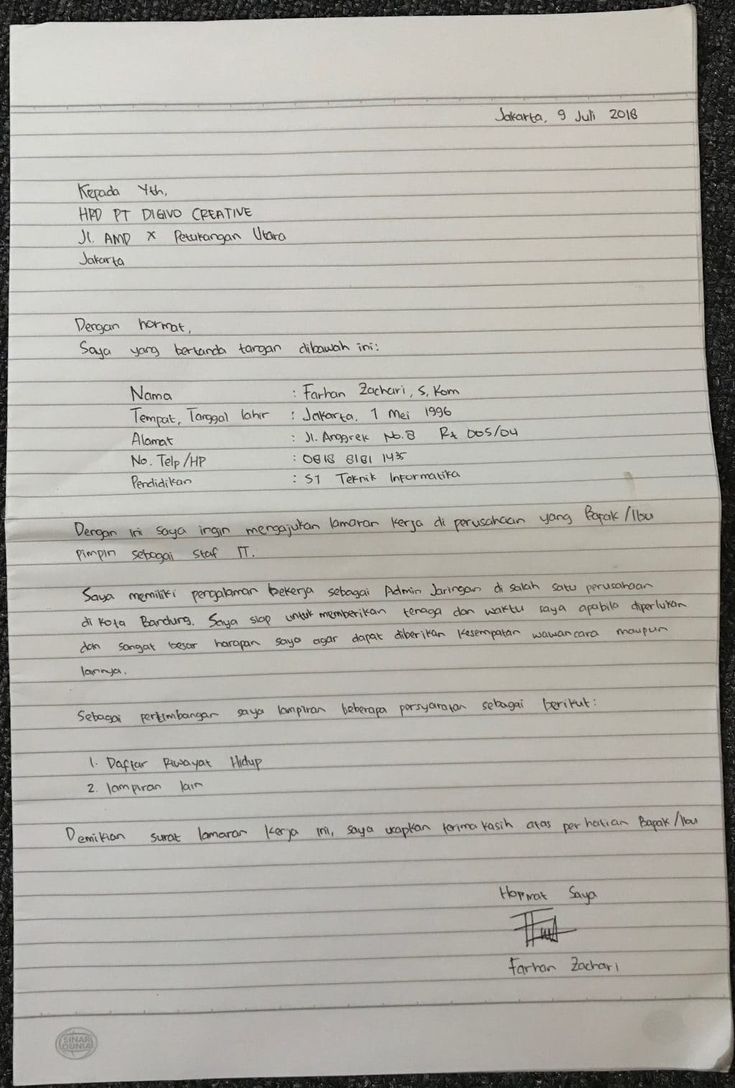 Jakarta, 9 Juli 2018
Kepada Yth,
HRD PT DIGIVO CREATIVE
Jl. AMD X Petukangan Utara
Jakarta
Dengan hormat,
Saya yang bertanda tangan dibawah ini:
Nama : Farhan Zachari, S. Kom
Tempat, Tanggal lahir : Jakarta, 1 Mei 1996
Alamat : Jl. Anggrek No.8 Rt 005/04
No. Telp/HP : 0818 8181 1435
Pendidikan : S1 Teknik Informatika
Dengan ini saya ingin mengajukan lamaran kerja di perusahaan yang Bapak/Ibu
pimpin sebagai staf IT.
Saya memiliki pengalaman bekerja sebagai Admin Jaringan di salah satu perusahaan
di kota Bandung. Saya siap untuk memberikan tenaga dan waktu saya apabila diperlukan
dan sangat besar harapan saya agar dapat diberikan kesempatan wawancara maupun
lannya.
Sebagai pertimbangan saya lampiran beberapa persyaratan sebagai berikut:
1. Daftar Riwayat Hidup
2. lampiran lain
Demikian surat lamaran kerja ini, saya ucapkan terima kasih atas perhatian Bapak/Ibu
Hormat Saya
Farhan Zachari
SINAR
DUNIA